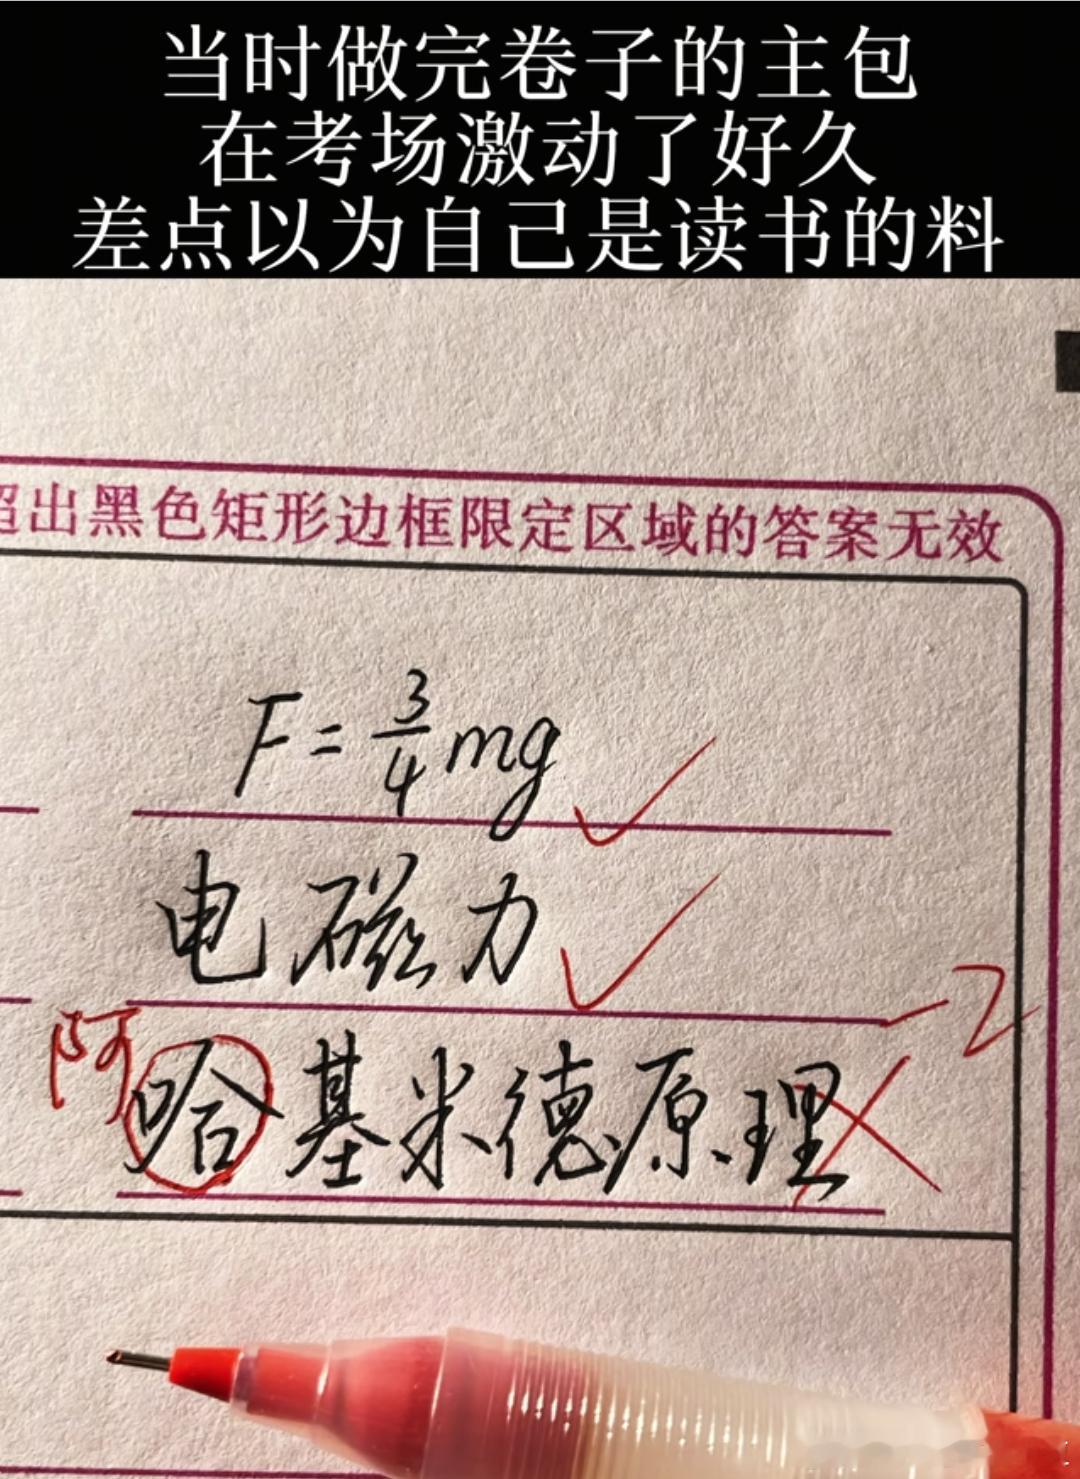 当时做完卷子的主包
在考场激动了好久
差点以为自己是读书的料
超出黑色矩形边框限定区域的答案无效
F = 3/4 mg
电磁力
-2
阿
哈基米德原理